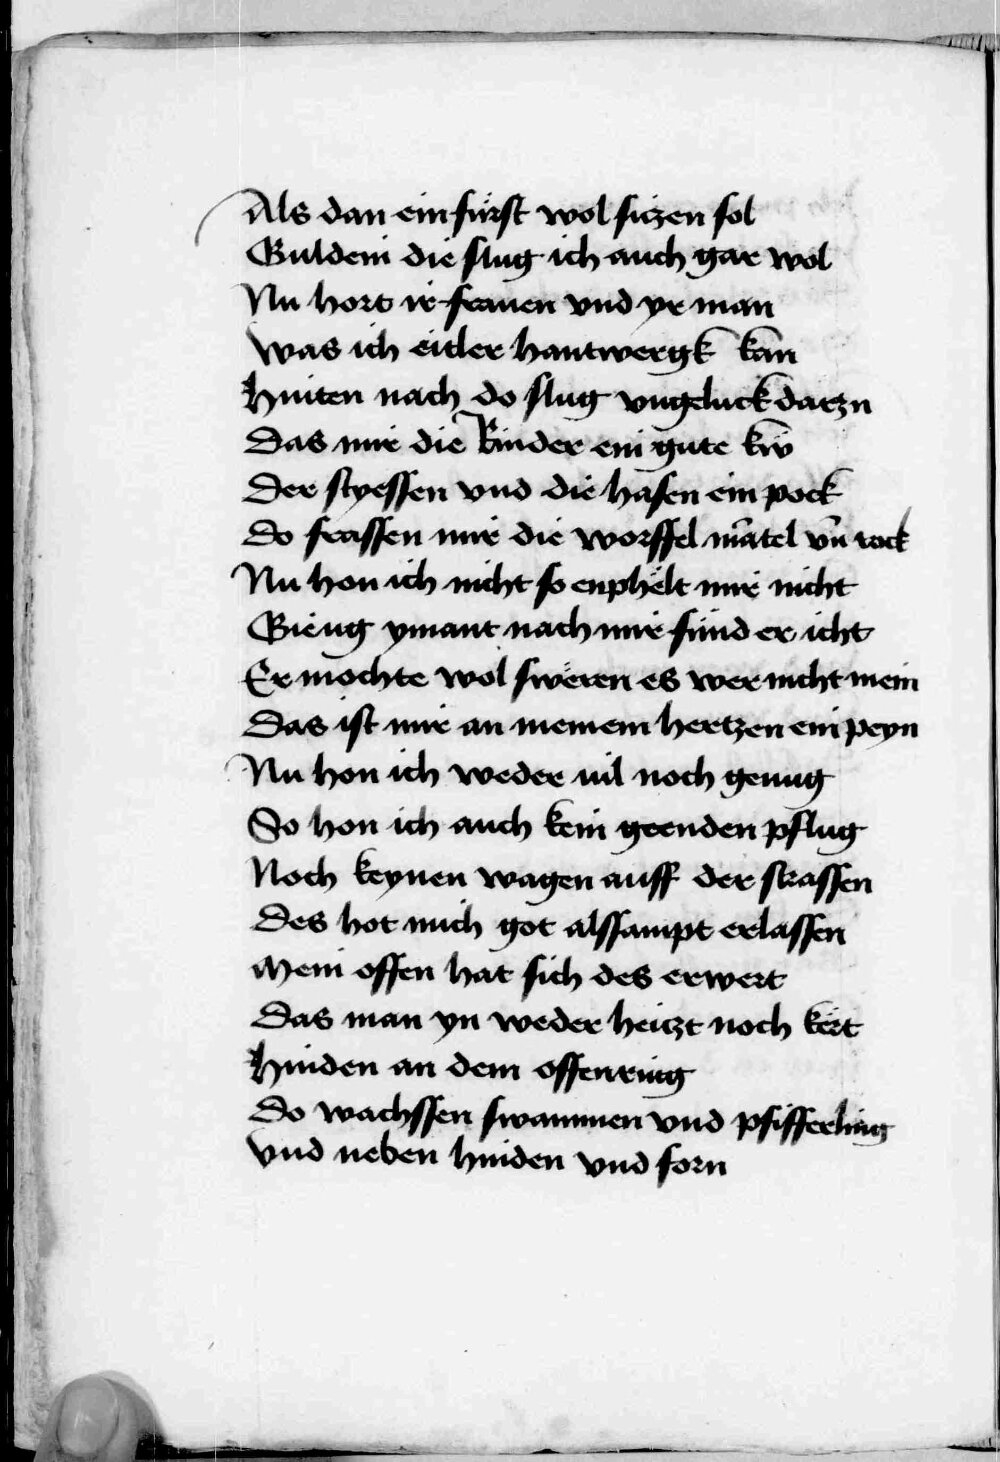 Als dan ein fürst wol siczen sol
Guldein die slug ich auch gar wol
Nu hort ir frauen vnd yr man
Was ich eitler hantwergk kan
Hinten nach do slug vngeluck darzu
Das mir die Rinder ein gute kw
Der styessen vnd die hasen ein pock
Do frassen mir die worffel mātel vn̄ rock
Nu hon ich nicht so enphelt mir nicht
Gieng ymant nach mir fund er icht
Er mochte wol sweren es wer nicht mein
Das ist mir an meinem hertzen ein peyn
Nu hon ich weder vil noch genug
So hon ich auch kein geenden pflug
Noch keynen wagen auff der strassen
Des hot mich got alssampt erlassen
Mein offen hat sich des erwert
Das man yn weder heiczt noch kert
Hinden an dem offenring
Do wachssen swammen vnd pfifferling
Vnd neben hinden vnd forn